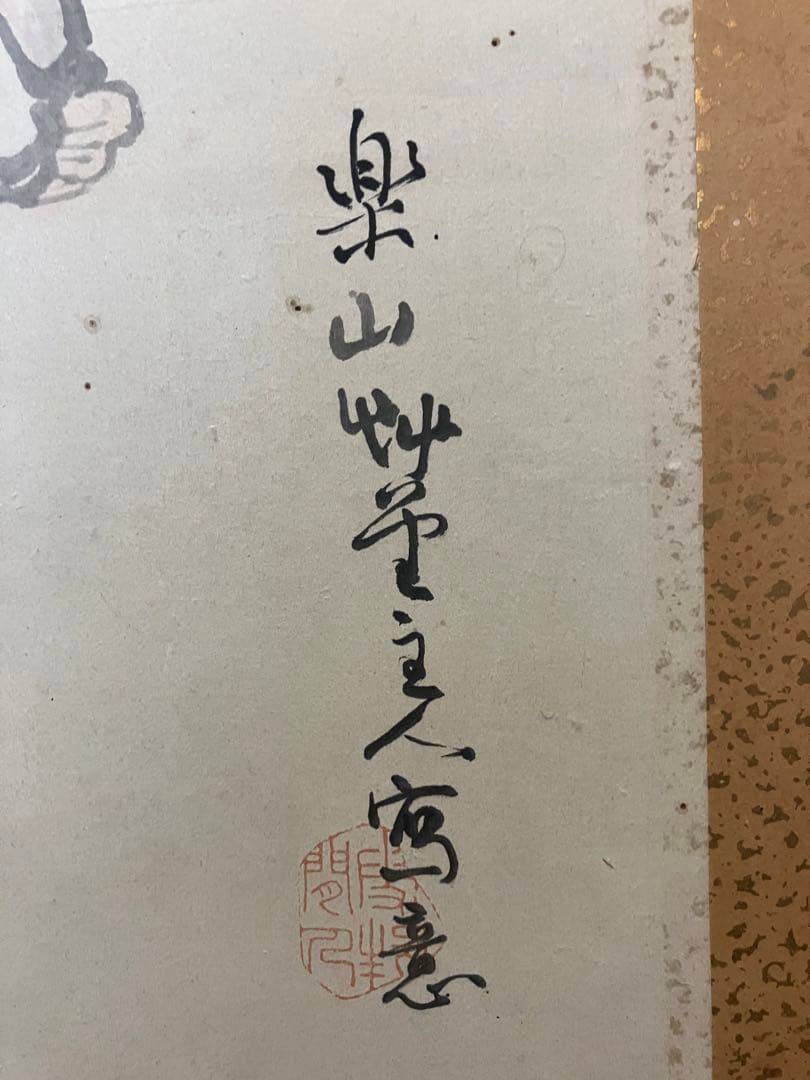 楽山艸堂主人寫意